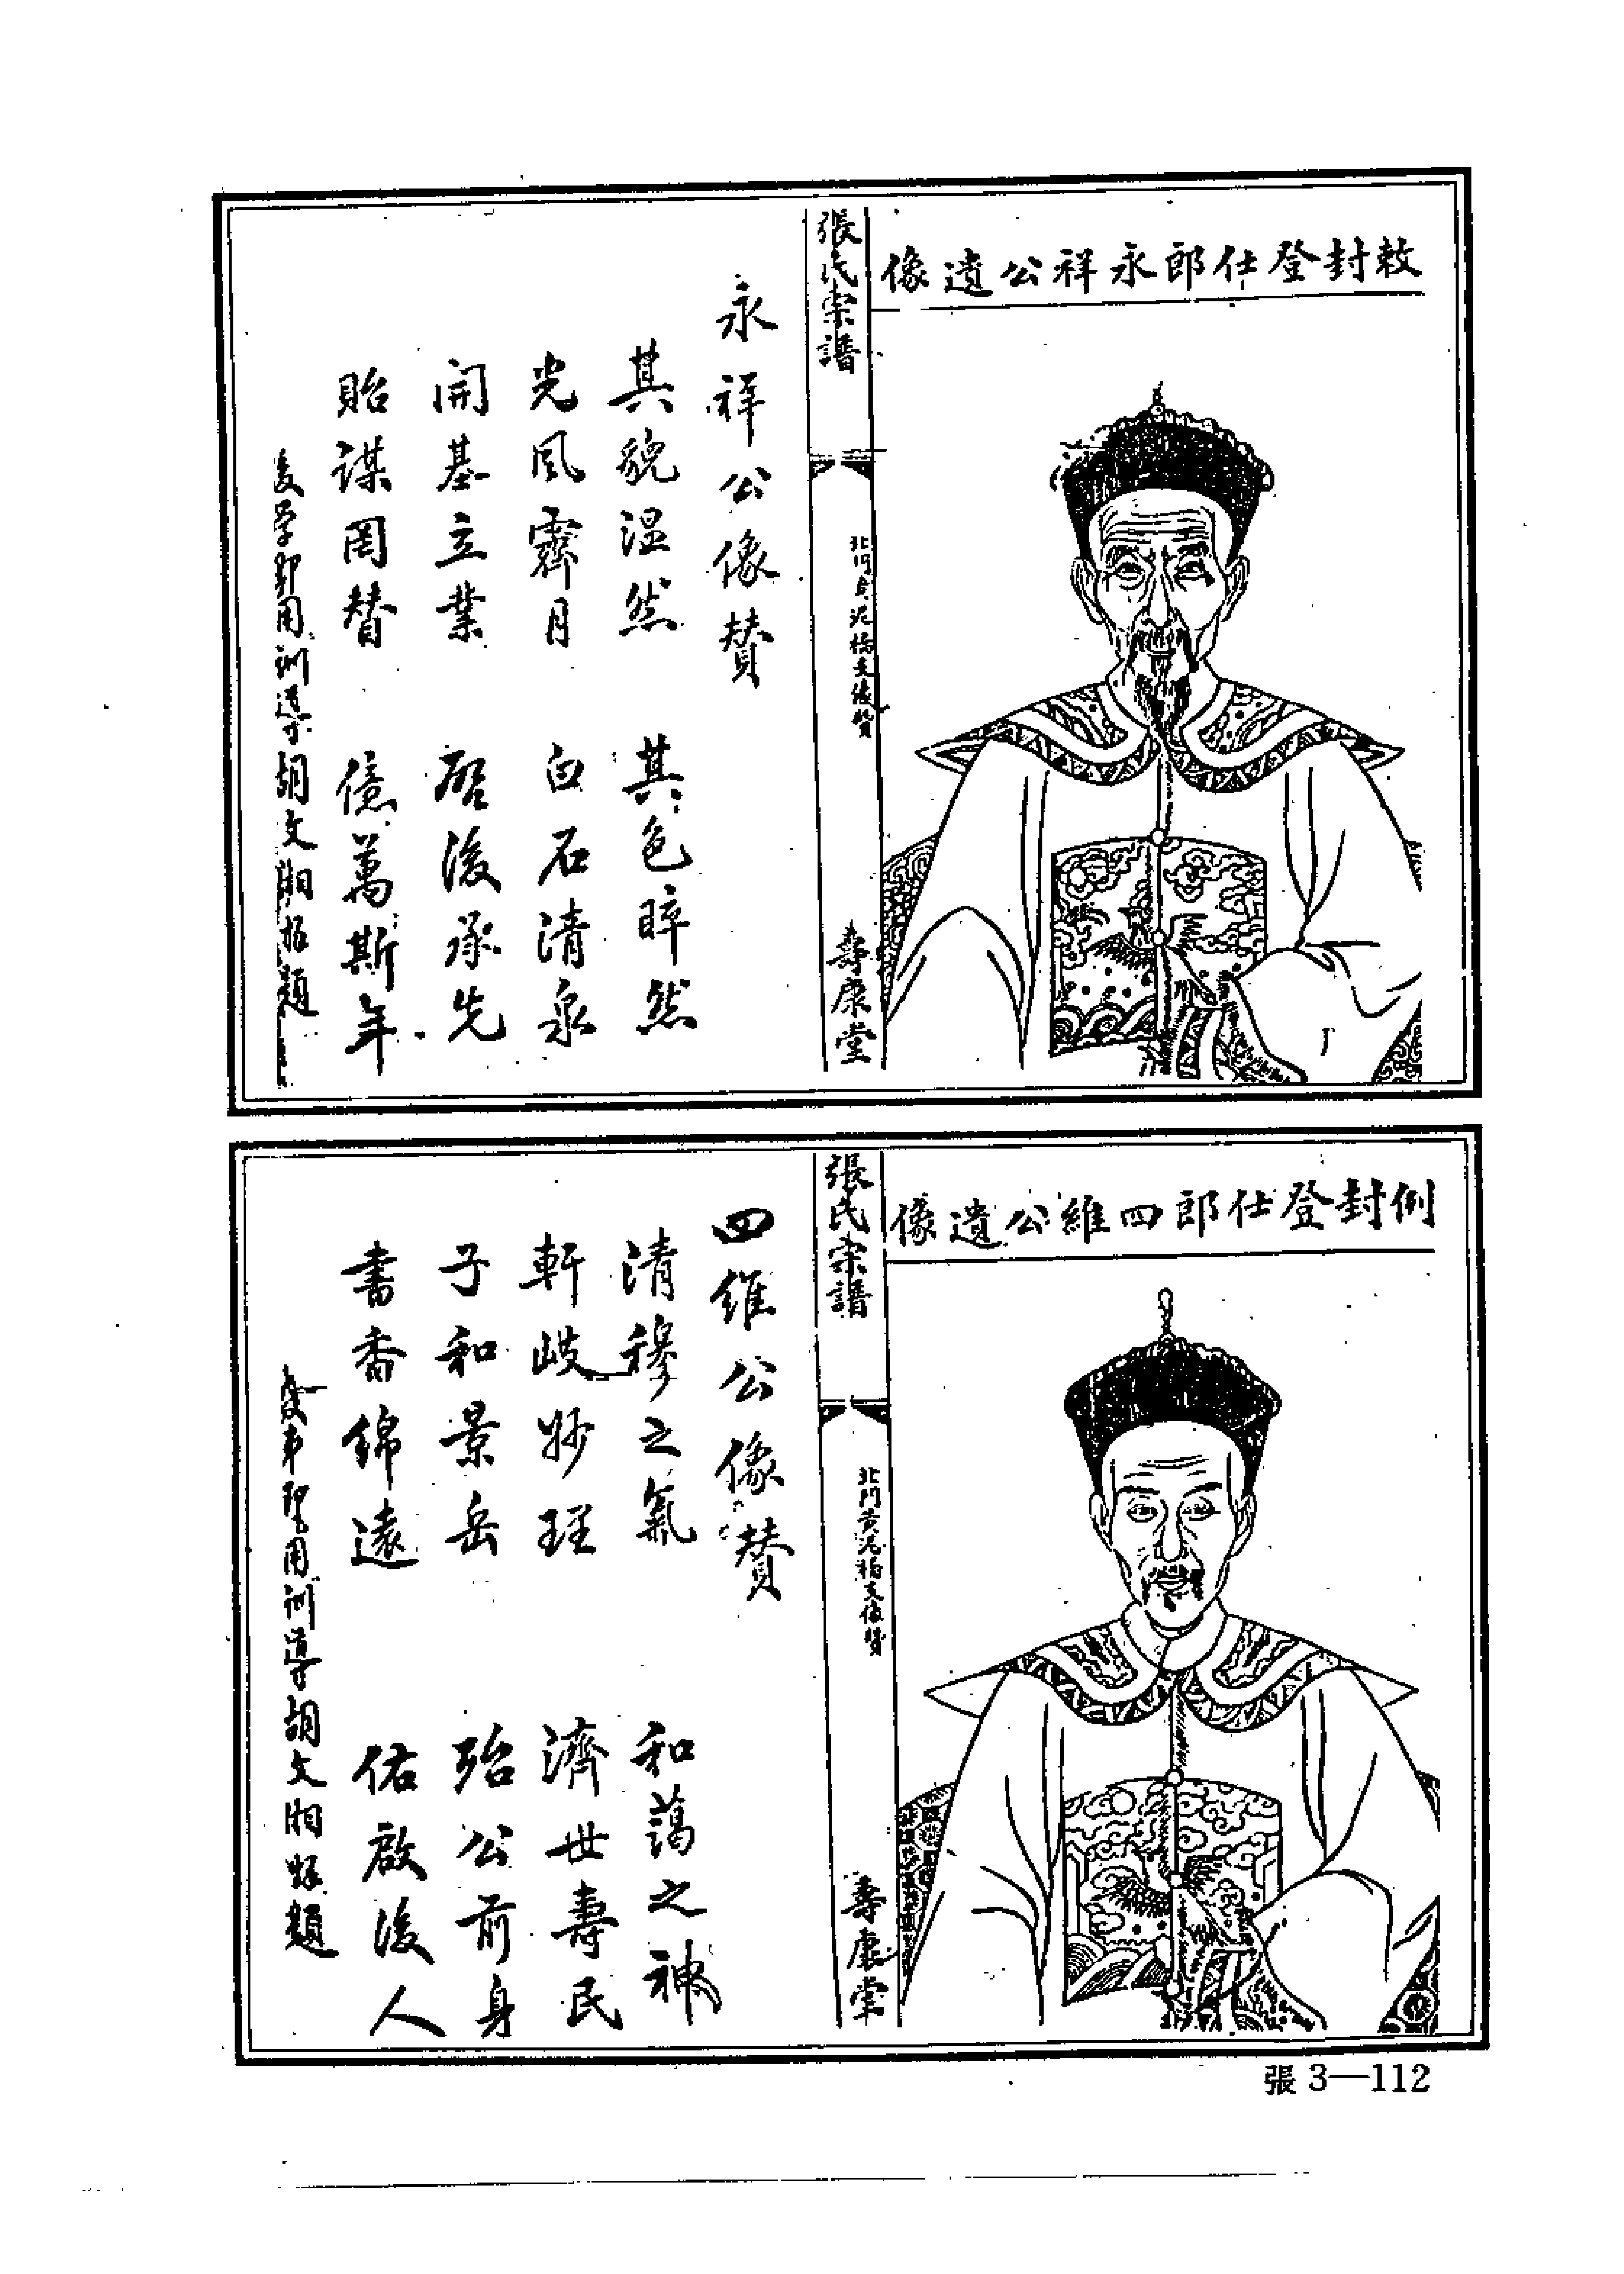 敕封登仕郎永祥公遺像
張氏宗譜
北門黃泥橋支像贊
壽康堂
永祥公像贊
其貌温然 其色睟然
光風霽月 白石清泉
開基立業 啓後承先
貽謀罔替 億萬斯年
訓導胡文湘拜題
例封登仕郎四維公遺像
張氏宗譜
北門黃泥橋支像贊
壽康堂
四維公像贊
清穆之氣 和藹之神
軒歧妙理 濟世壽民
子和景岳 殆公前身
書香綿遠 佑啟後人
訓導胡文湘拜題
張3—112